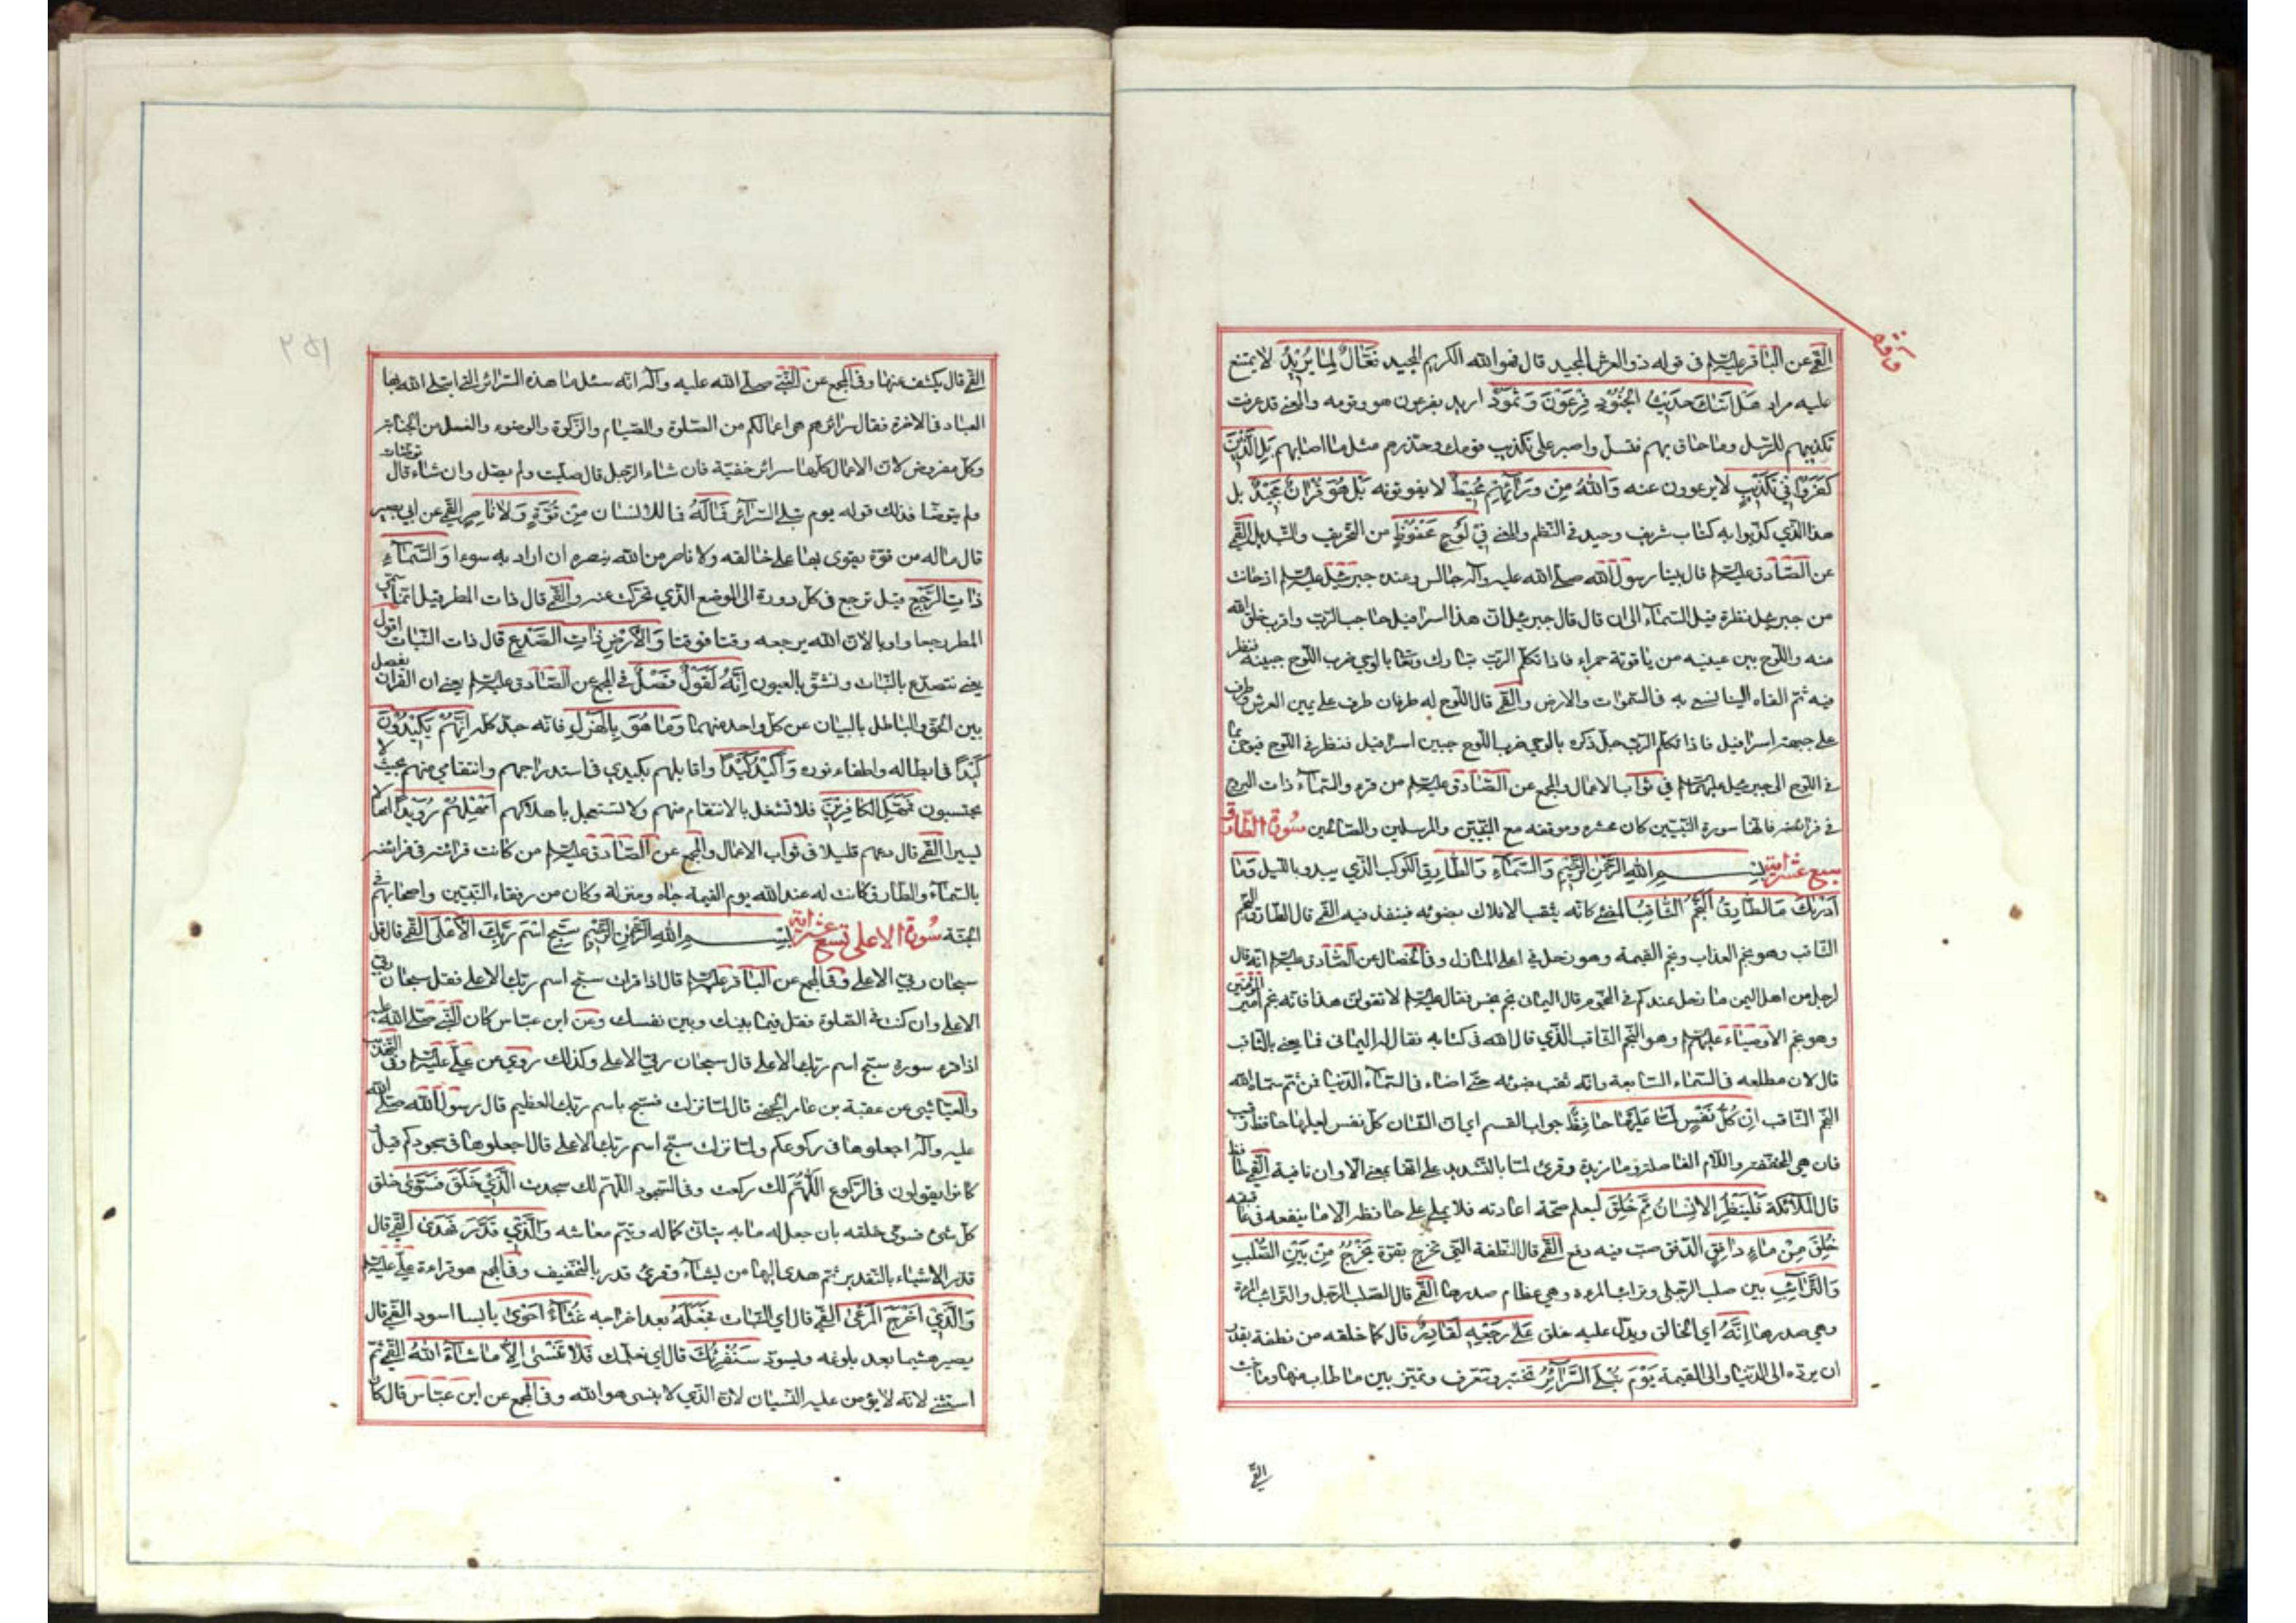 القمّي عن الباقر عليه السلم فى قوله ذو العرش المجيد قال فهو الله الكريم المجيد فَعَّالٌ لِمَا يُرِيْدُ لا يمتنع
عليه مراد هَلْ اَتٰىكَ حَدِيْثُ الْجُنُوْدِ فِرْعَوْنَ وَثَمُوْدَ اريد بفرعون هو وقومه والمعنى قد عرفت
تكذيبهم للرّسل وما حاق بهم فتسلّ واصبر على تكذيب قومك وحذّرهم مثل ما اصابهم بَلِ الَّذِيْنَ
كَفَرُوْا فِيْ تَكْذِيْبٍ لا يرعوون عنه وَاللّٰهُ مِنْ وَرَآئِهِمْ مُحِيْطٌ لا يفوتونه بَلْ هُوَ قُرْاٰنٌ مَجِيْدٌ بل
هذا الّذي كذّبوا به كتاب شريف وحيد فى النّظم والمعنى فِيْ لَوْحٍ مَحْفُوْظٍ من التّحريف والتّبديل القمّي
عن الصّادق عليه السلم قال بينا رسول الله صلّى الله عليه وآله جالس وعنده جبرئيل عليه السلم اذ حانت
من جبرئيل نظرة قبل السّمآء الى ان قال قال جبرئيل انّ هذا اسرافيل حاجب الرّبّ واقرب خلق الله
منه واللّوح بين عينيه من ياقوتة حمراء فاذا تكلّم الرّبّ تبارك وتعالى بالوحي ضرب اللّوح جبينه فنظر
فيه ثمّ القاه الينا نسعى به فى السّموات والارض والقمّي قال اللّوح له طرفان طرف على يمين العرش وطرف
على جبهة اسرافيل فاذا تكلّم الرّبّ جلّ ذكره بالوحي ضرب اللّوح جبين اسرافيل فنظر فى اللّوح فيوحي بما
فى اللّوح الى جبرئيل عليهما السلم في ثواب الاعمال والمجمع عن الصّادق عليه السلم من قرء والسّمآء ذات البروج
فى فرائضه فانّها سورة النّبيّين كان محشره وموقفه مع النّبيّين والمرسلين والصّالحين سُورة الطّارق
سبع عشرة آية بِسْمِ اللّٰهِ الرَّحْمٰنِ الرَّحِيْمِ وَالسَّمَآءِ وَالطَّارِقِ الكوكب الذي يبدو بالليل وَمَا
اَدْرٰىكَ مَا الطَّارِقُ اَلنَّجْمُ الثَّاقِبُ المضئ كانّه يثقب الافلاك بضوئه فينفذ فيه القمّي قال الطّارق النّجم
الثّاقب وهو نجم العذاب ونجم القيمة وهو زحل في اعلى المنازل وفى الخصال عن الصّادق عليه السلم انّه قال
لرجل من اهل اليمن ما زحل عندكم فى النّجوم قال اليمانى نجم نحس فقال عليه السلم لا تقولنّ هذا فانّه نجم امير المؤمنين
وهو نجم الاوصياء عليهم السلم وهو النّجم الثّاقب الّذي قال الله فى كتابه فقال له اليمانى فما يعني بالثّاقب
قال لان مطلعه فى السّماء السّابعة وانّه ثقب بضوئه حتّى اضاء فى السّمآء الدّنيا فمن ثمّ سمّاه الله
النّجم الثّاقب اِنْ كُلُّ نَفْسٍ لَمَّا عَلَيْهَا حَافِظٌ جواب القسم اي انّ الشّان كلّ نفس لعليها حافظ رقيب
فان هي المخفّفة واللّام الفاصلة وما مزيدة وقرئ لمّا بالتّشديد على انّها بمعنى الا وان نافية القمّي حافظ
قال الملائكة فَلْيَنْظُرِ الْاِنْسَانُ مِمَّ خُلِقَ ليعلم صحّة اعادته فلا يملي على حافظه الا ما ينفعه في عاقبته
خُلِقَ مِنْ مَاءٍ دَافِقٍ الدّفق صبّ فيه دفع القمّي قال النّطفة التي تخرج بقوّة يَخْرُجُ مِنْ بَيْنِ الصُّلْبِ
وَالتَّرَآئِبِ بين صلب الرّجل وترائب المرءة وهي عظام صدرها القمّي قال الصّلب الرّجل والتّرائب المرءة
وهي صدرها اِنَّهُ اي الخالق ويدلّ عليه خلق عَلٰى رَجْعِهِ لَقَادِرٌ قال كما خلقه من نطفة يقدر
ان يردّه الى الدّنيا والى القيمة يَوْمَ تُبْلَى السَّرَآئِرُ تختبر وتتعرف وتميّز بين ما طاب منها وما خبث
القمّي
القمّي قال يكشف عنها وفى المجمع عن النّبيّ صلّى الله عليه وآله انّه سئل ما هذه السّرائر الّتي ابتلى الله بها
العباد فى الاخرة فقال سرائركم هي اعمالكم من الصّلوة والصّيام والزّكوة والوضوء والغسل من الجنابة
وكلّ مفروض لانّ الاعمال كلّها سرائر خفيّة فان شاء الرّجل قال صلّيت ولم يصلّ وان شاء قال توضّات
ولم يتوضّا فذلك قوله يوم تبلى السّرآئر فَمَا لَهُ فما للانسان مِنْ قُوَّةٍ وَلَا نَاصِرٍ القمّي عن ابي بصير
قال ماله من قوّة يقوى بها على خالقه ولا ناصر من الله ينصره ان اراد به سوءا وَالسَّمَآءِ
ذَاتِ الرَّجْعِ قيل ترجع فى كلّ دورة الى الموضع الّذي تحرّك عنه والقمّي قال ذات المطر قيل انّما سمّي
المطر رجعا واوبا لانّ الله يرجعه وقتا فوقتا وَالْاَرْضِ ذَاتِ الصَّدْعِ قال ذات النّبات اقول
يعني تتصدّع بالنّبات وتشقّ بالعيون اِنَّهُ لَقَوْلٌ فَصْلٌ في المجمع عن الصّادق عليه السلم يعنى ان القران يفصل
بين الحقّ والباطل بالبيان عن كلّ واحد منهما وَمَا هُوَ بِالْهَزْلِ فانّه جدّ كلّه اِنَّهُمْ يَكِيْدُوْنَ
كَيْدًا فى ابطاله واطفاء نوره وَاَكِيْدُ كَيْدًا واقابلهم بكيدي فى استدراجهم وانتقامي منهم بحيث لا
يحتسبون فَمَهِّلِ الْكَافِرِيْنَ فلا تشغل بالانتقام منهم ولا تستعجل باهلاكهم اَمْهِلْهُمْ رُوَيْدًا امهالا
يسيرا القمّي قال دعهم قليلا فى ثواب الاعمال والمجمع عن الصّادق عليه السلم من كانت قرائته فى فرائضه
بالسّمآء والطارق كانت له عند الله يوم القيمة جاه ومنزلة وكان من رفقاء النّبيّين واصحابهم فى
الجنّة سُورة الاعلى تسع عشرة آية بِسْمِ اللّٰهِ الرَّحْمٰنِ الرَّحِيْمِ سَبِّحِ اسْمَ رَبِّكَ الْاَعْلَى القمّي قال قل
سبحان ربّي الاعلى وفى المجمع عن الباقر عليه السلم قال اذا قرات سبّح اسم ربّك الاعلى فقل سبحان ربّي
الاعلى وان كنت فى الصّلوة فقل فيما بينك وبين نفسك وعن ابن عبّاس كان النّبيّ صلّى الله عليه
اذا قرء سورة سبّح اسم ربّك الاعلى قال سبحان ربّي الاعلى وكذلك روي عن عليّ عليه السلم وفى التّهذيب
والعيّاشي عن عقبة بن عامر الجهني قال لمّا نزلت فسبّح باسم ربّك العظيم قال رسول الله صلّى الله
عليه وآله اجعلوها فى ركوعكم ولمّا نزلت سبّح اسم ربّك الاعلى قال اجعلوها فى سجودكم قيل
كانوا يقولون فى الرّكوع اللّهمّ لك ركعت وفى السّجود اللّهمّ لك سجدت اَلَّذِيْ خَلَقَ فَسَوّٰى خلق
كلّ شئ فسوّى خلقه بان جعل له ما به يتاتّى كماله ويتمّ معاشه وَالَّذِيْ قَدَّرَ فَهَدٰى القمّي قال
قدّر الاشياء بالتّقدير ثمّ هدى اليها من يشآء وقرئ قدر بالتّخفيف وفى المجمع هو قراءة عليّ عليه السلم
وَالَّذِيْ اَخْرَجَ الْمَرْعٰى القمّي قال اي النّبات فَجَعَلَهُ بعد اخراجه غُثَآءً اَحْوٰى يابسا اسود القمّي قال
يصير هشيما بعد بلوغه ويسودّ سَنُقْرِئُكَ قال اي نعلّمك فَلَا تَنْسٰى اِلَّا مَا شَآءَ اللّٰهُ القمّي ثمّ
استثنى لانّه لا يؤمن عليه النّسيان لانّ الّذي لا ينسى هو الله وفى المجمع عن ابن عبّاس قال كان